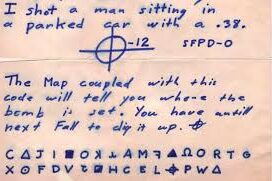 I shot a man sitting in
a parked car with a .38.
⌖-12 SFPD-0
The Map coupled with this
code will tell you where the
bomb is set. You have untill
next Fall to dig it up. ⌖
C Δ J I ■ O ꓘ ⅄ A M ꟻ ▲ Ω O R T G
X ⊙ F D V ꞇ ▣ H C E L ⌖ P W Δ